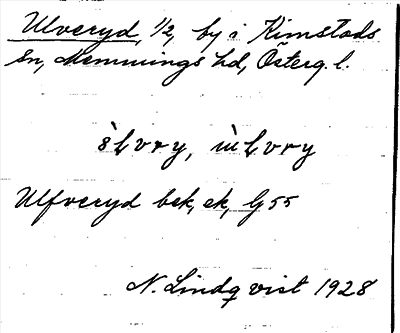 Ulveryd, 1/2, by i Kimstads
sn, Memmings hd, Österg. l.
Ulfveryd bek, ek, G 55
N. Lindqvist 1928